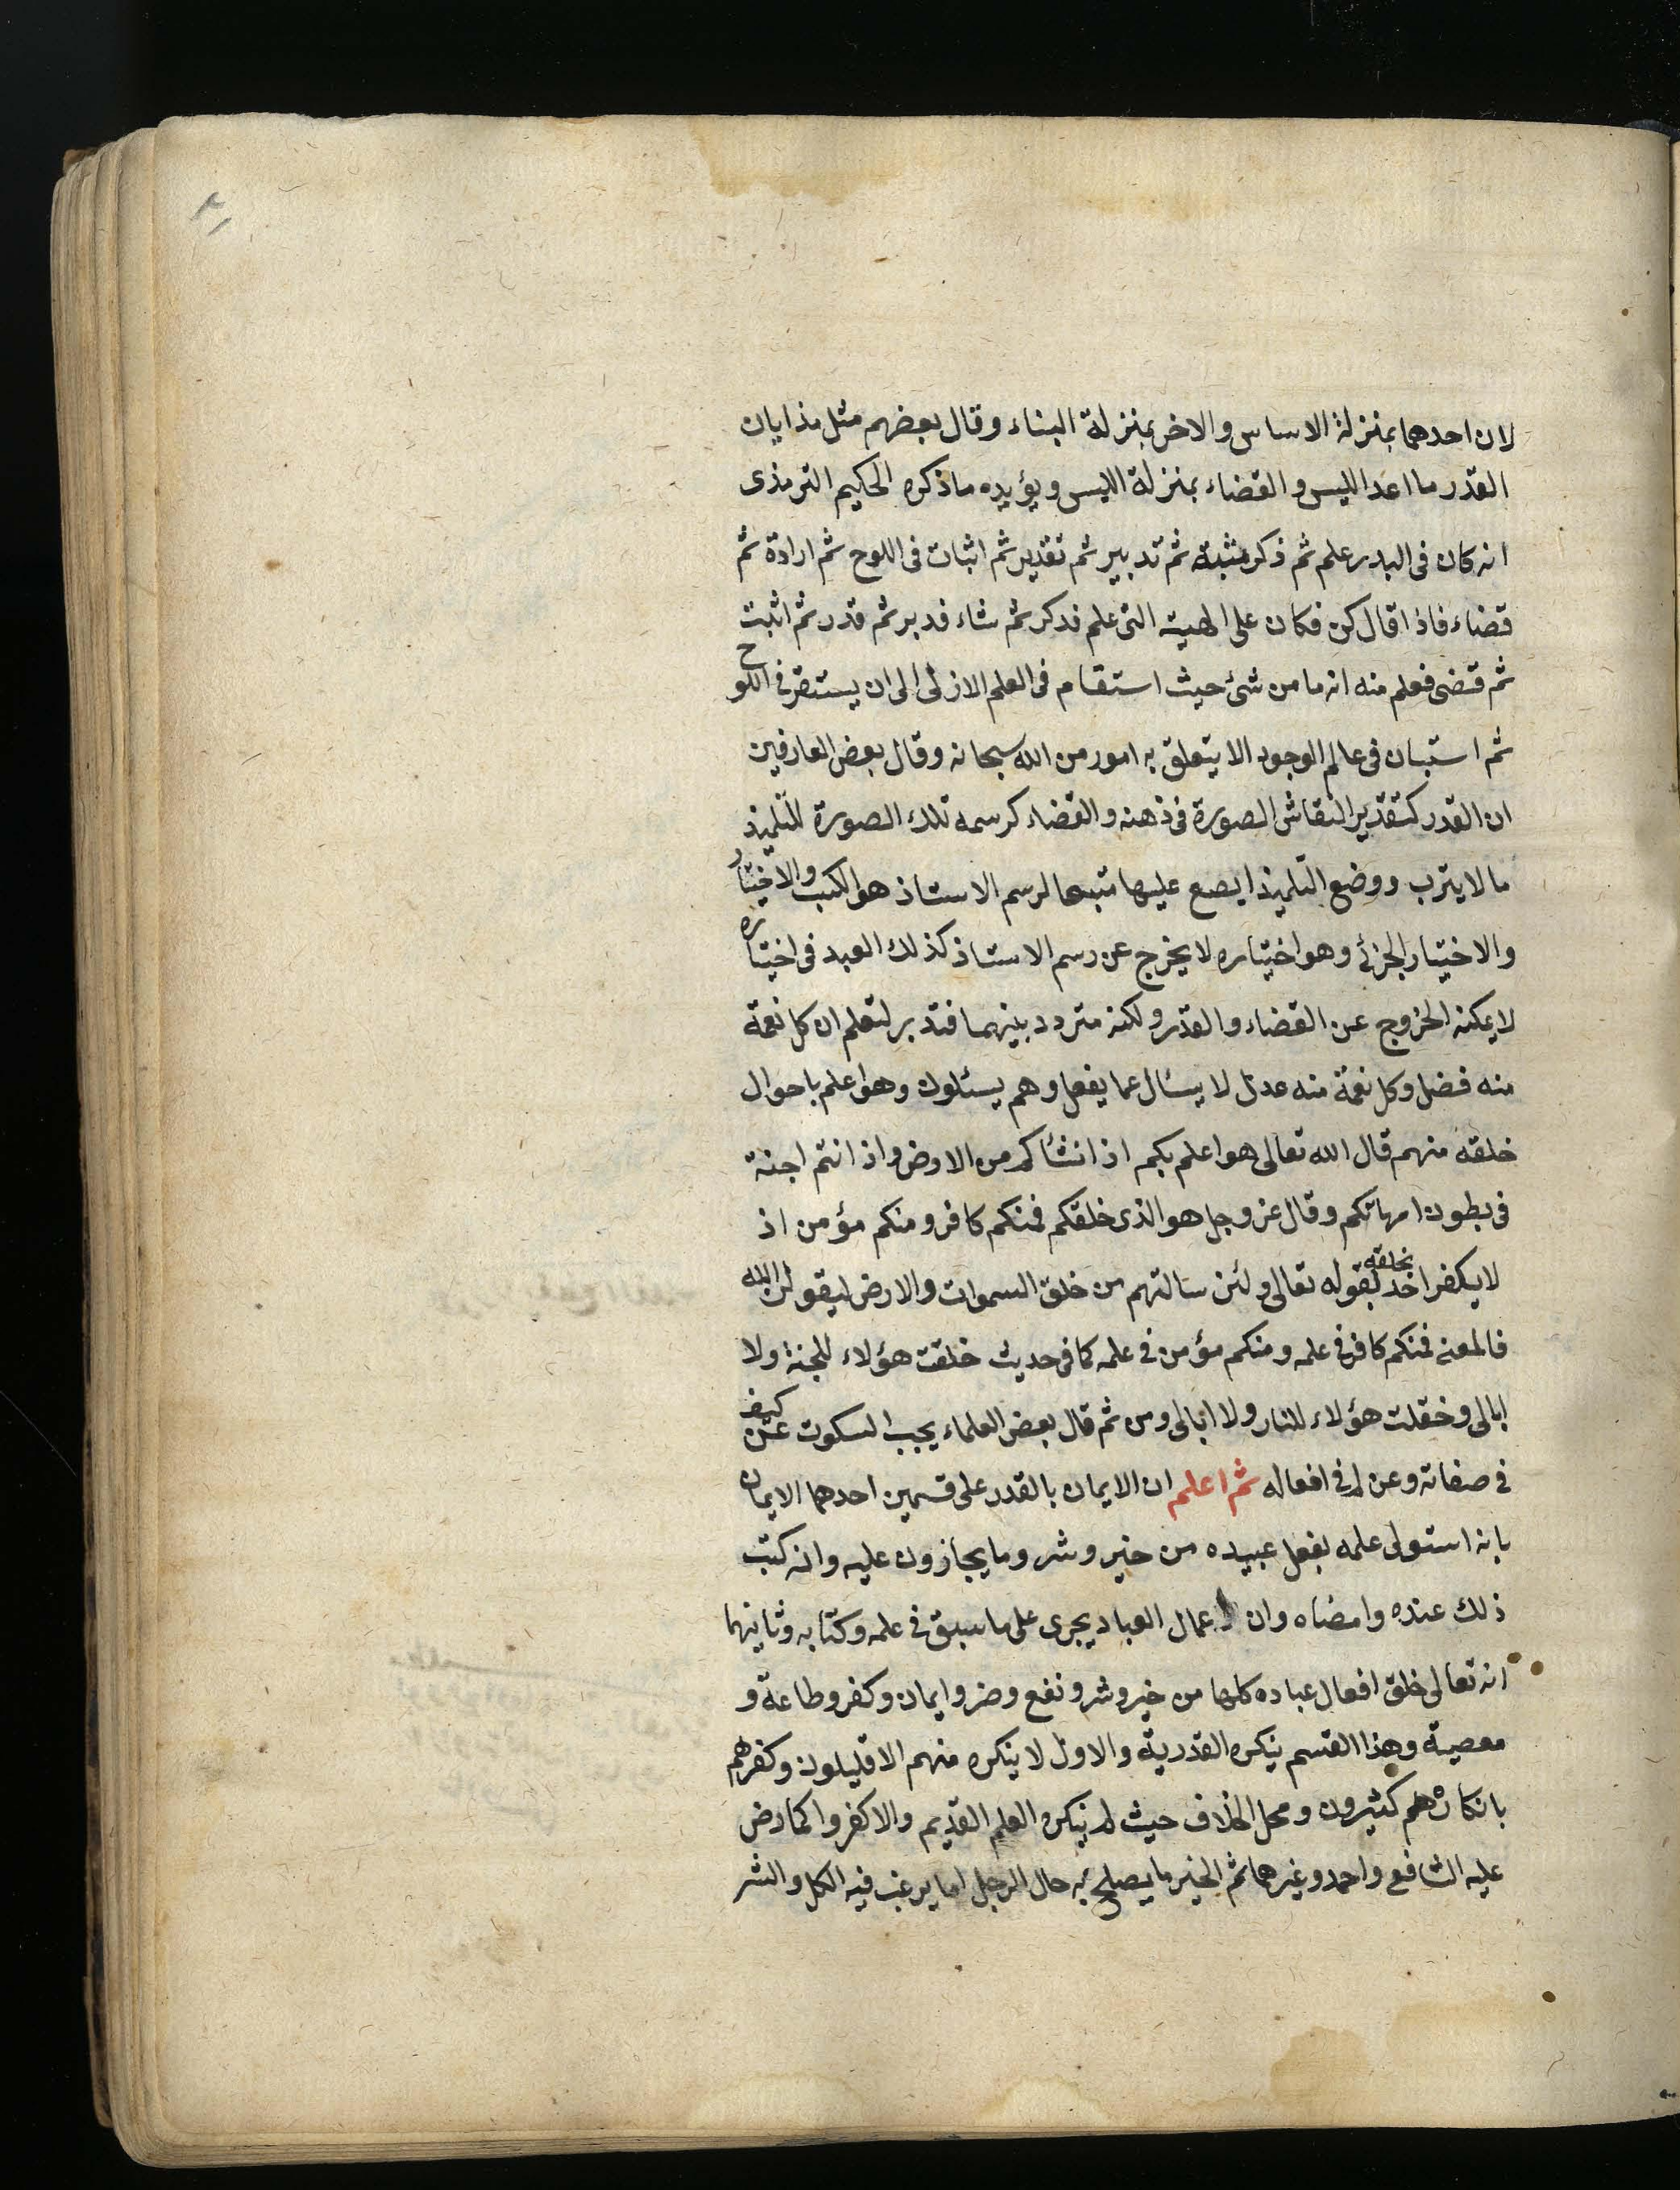 لان احدهما بمنزلة الاساس والاخر بمنزلة البناء وقال بعضهم مثل هذا بان
القدر ما اعد اللبس والقضاء بمنزلة اللبس ويؤيده ما ذكره الحكيم الترمذى
انه كان فى البدر علم ثم ذكر مشيئة ثم تدبير ثم تقدير ثم اثبات فى اللوح ثم ارادة ثم
قضاء فاذا قال كن فكان على الهيئة التى علم فذكر ثم شاء فدبر ثم قدر ثم اثبت
ثم قضى فعلم منه انه ما من شئ حيث استقام فى العلم الازلى الى ان يستقر فى اللوح
ثم استبان فى عالم الوجود الا يتعلق به امور من الله سبحانه وقال بعض العارفين
ان القدر كتقدير النقاش الصورة فى ذهنه والقضاء كرسمه تلك الصورة للتلميذ
ما لا يترب ووضع التلميذ ا يصع عليها متبعا لرسم الاستاذ هو الكسب والاختيار
والاختيار الجزئى وهو اختياره لا يخرج عن رسم الاستاذ كذلك العبد فى اختياره
لا يمكنه الخروج عن القضاء والقدر ولكنه متردد بينهما فتدبر لتعلم ان كل نعمة
منه فضل وكل نقمة منه عدل لا يسئال عما يفعل وهم يسئلون وهو اعلم باحوال
خلقه منهم قال الله تعالى هو اعلم بكم اذ انشاكم من الارض واذ انتم اجنة
فى بطون امهاتكم وقال عز وجل هو الذى خلقكم فمنكم كافر ومنكم مؤمن اذ
لا يكفر احد بخلقه لقوله تعالى ولئن سالتهم من خلق السموات والارض ليقولن الله
فالمعنى فمنكم كافر فى علمه ومنكم مؤمن فى علمه كما فى حديث خلقت هؤلاء للجنة ولا
ابالى وخقلت هؤلاء للنار ولا ابالى ومن ثم قال بعض العلماء يجب السكوت عن كيف
فى صفاته وعن لم فى افعاله ثم اعلم ان الايمان بالقدر على قسمين احدهما الايمان
بانه استولى علمه بفعل عبيده من خير وشر وما يجازون عليه وانه كتب
ذلك عنده وامضاه وان اعمال العباد يجرى على ما سبق فى علمه وكتابه وثانيهما
انه تعالى خلق افعال عباده كلها من خير وشر ونفع وضر وايمان وكفر وطاعة و
معصية وهذا القسم ينكره القدرية والاول لا ينكره منهم الا قليلون وكفرهم
بانكاره هم كثيرون ومحل الخلاف حيث لم ينكروا العلم القديم والا كفروا كما رض
عليه الشافع واحمد وغيرهما ثم الخير ما يصلح به حال الرجل اما يرغب فيه الكل والشر